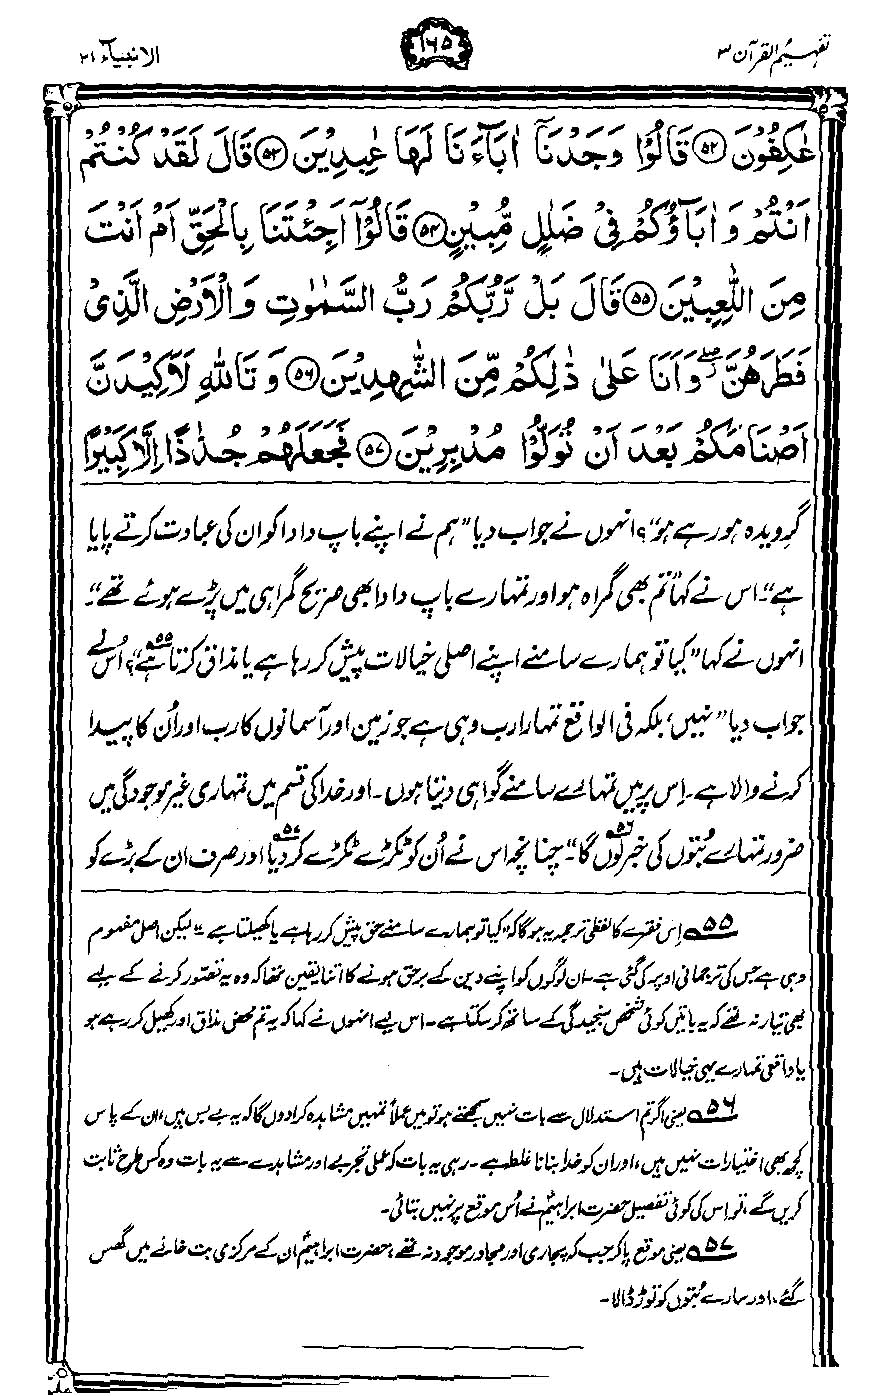 تفہیم القرآن ۳
۱۶۵
الانبیآء ۲۱
عٰكِفُوْنَ ﴿۵۲﴾ قَالُوْا وَجَدْنَاۤ اٰبَآءَنَا لَهَا عٰبِدِيْنَ ﴿۵۳﴾ قَالَ لَقَدْ كُنْتُمْ
اَنْتُمْ وَ اٰبَآؤُكُمْ فِيْ ضَلٰلٍ مُّبِيْنٍ ﴿۵۴﴾ قَالُوْۤا اَجِئْتَنَا بِالْحَقِّ اَمْ اَنْتَ
مِنَ اللّٰعِبِيْنَ ﴿۵۵﴾ قَالَ بَلْ رَّبُّكُمْ رَبُّ السَّمٰوٰتِ وَالْاَرْضِ الَّذِيْ
فَطَرَهُنَّ ۖ وَاَنَا عَلٰى ذٰلِكُمْ مِّنَ الشّٰهِدِيْنَ ﴿۵۶﴾ وَ تَاللّٰهِ لَاَكِيْدَنَّ
اَصْنَامَكُمْ بَعْدَ اَنْ تُوَلُّوْا مُدْبِرِيْنَ ﴿۵۷﴾ فَجَعَلَهُمْ جُذٰذًا اِلَّا كَبِيْرًا
گرویدہ ہو رہے ہو“؟ انہوں نے جواب دیا ”ہم نے اپنے باپ دادا کو ان کی عبادت کرتے پایا
ہے“۔ اس نے کہا ”تم بھی گمراہ ہو اور تمہارے باپ دادا بھی صریح گمراہی میں پڑے ہوئے تھے“۔
انہوں نے کہا ”کیا تو ہمارے سامنے اپنے اصلی خیالات پیش کر رہا ہے یا مذاق کرتا ۵۵ ہے“؟ اُس نے
جواب دیا ”نہیں، بلکہ فی الواقع تمہارا رب وہی ہے جو زمین اور آسمانوں کا رب اور اُن کا پیدا
کرنے والا ہے۔ اِس پر میں تمہارے سامنے گواہی دیتا ہوں۔ اور خدا کی قسم میں تمہاری غیر موجودگی میں
ضرور تمہارے بُتوں کی خبر لوں ۵۶ گا“۔ چنانچہ اس نے اُن کو ٹکڑے ٹکڑے کر دیا ۵۷ اور صرف ان کے بڑے کو
۵۵ اِس فقرے کا لفظی ترجمہ یہ ہوگا کہ ”کیا تو ہمارے سامنے حق پیش کر رہا ہے یا کھیلتا ہے۔“ لیکن اصل مفہوم
وہی ہے جس کی ترجمانی اوپر کی گئی ہے۔ ان لوگوں کو اپنے دین کے برحق ہونے کا اتنا یقین تھا کہ وہ یہ تصور کرنے کے لیے
بھی تیار نہ تھے کہ یہ باتیں کوئی شخص سنجیدگی کے ساتھ کر سکتا ہے۔ اس لیے انہوں نے کہا کہ یہ تم محض مذاق اور کھیل کر رہے ہو
یا واقعی تمہارے یہی خیالات ہیں۔
۵۶ یعنی اگر تم استدلال سے بات نہیں سمجھتے ہو تو میں عملاً تمہیں مشاہدہ کرا دوں گا کہ یہ بے بس ہیں، ان کے پاس
کچھ بھی اختیارات نہیں ہیں، اور ان کو خدا بنانا غلط ہے۔ رہی یہ بات کہ عملی تجربے اور مشاہدے سے یہ بات وہ کس طرح ثابت
کریں گے، تو اس کی کوئی تفصیل حضرت ابراہیمؑ نے اُس موقع پر نہیں بتائی۔
۵۷ یعنی موقع پا کر جب کہ پجاری اور مجاور موجود نہ تھے، حضرت ابراہیمؑ ان کے مرکزی بت خانے میں گھس
گئے، اور سارے بُتوں کو توڑ ڈالا۔